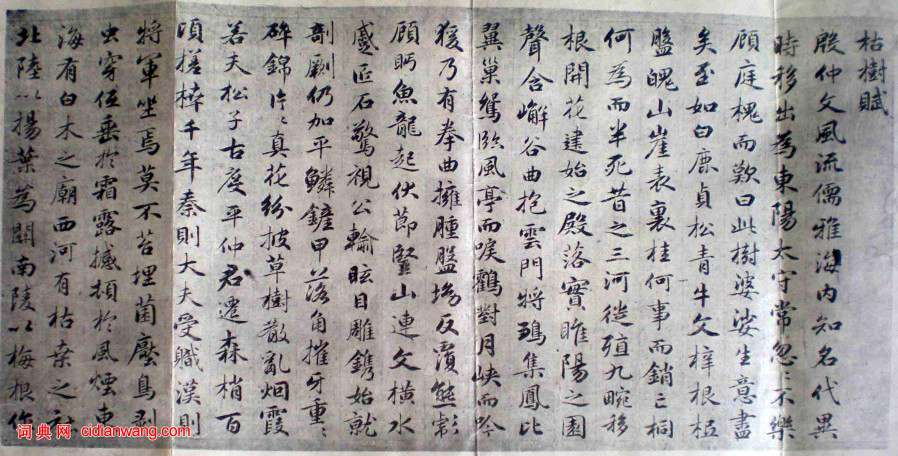 枯樹賦
殷仲文風流儒雅海內知名代異
時移出為東陽太守常忽〻不樂
顧庭槐而歎曰此樹婆娑生意盡
矣至如白鹿貞松青牛文梓根柢
盤魄山崖表裏桂何事而銷亡桐
何為而半死昔之三河徙殖九畹移
根開花建始之殿落實睢陽之園
聲含嶰谷曲抱雲門將鵄集鳳比
翼巢鴛臨風亭而唳鶴對月峽而吟
猨乃有拳曲擁腫盤坳反覆熊彪
顧眄魚龍起伏節豎山連文橫水
蹙匠石驚視公輸眩目雕鐫始就
剞劂仍加平鱗鏟甲落角摧牙重〻
碎錦片〻真花紛披草樹散亂烟霞
若夫松子古度平仲君遷森梢百
頃槎枿千年秦則大夫受職漢則
將軍坐焉莫不苔埋菌壓鳥剝
虫穿伍垂於霜露撼頓於風煙東
海有白木之廟西河有枯桑之社
北陸以楊葉為關南陵以梅根作
词典网 cidianwang.com